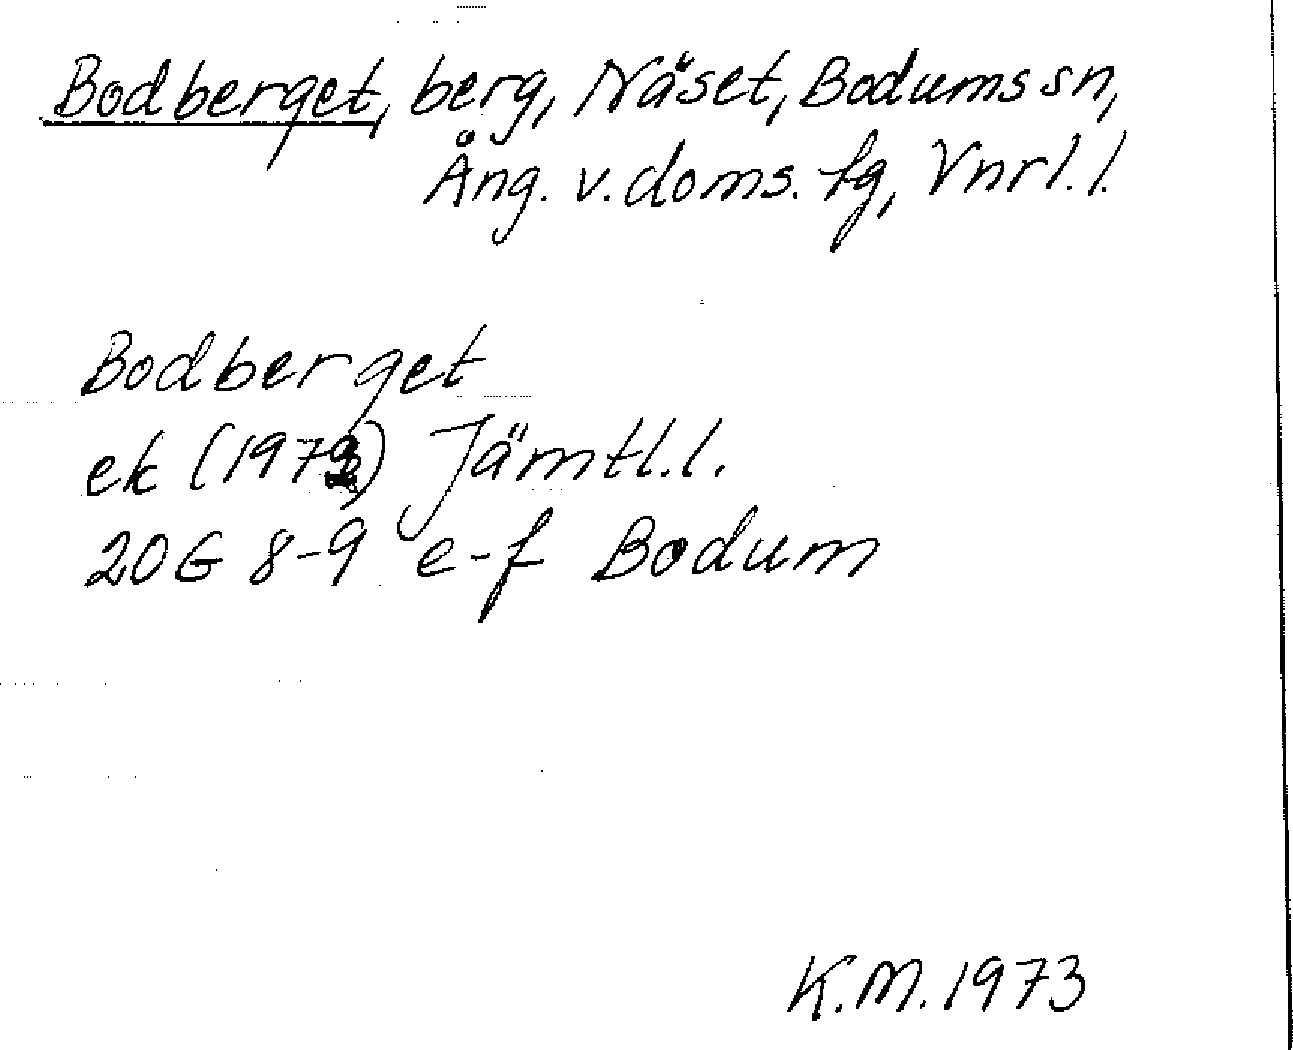 Bodberget, berg, Näset, Bodums sn,
Ång. v. doms. fg, Vnrl. l.
Bodberget
ek (1973) Jämtl. l.
20G 8-9 e-f Bodum
K.M. 1973